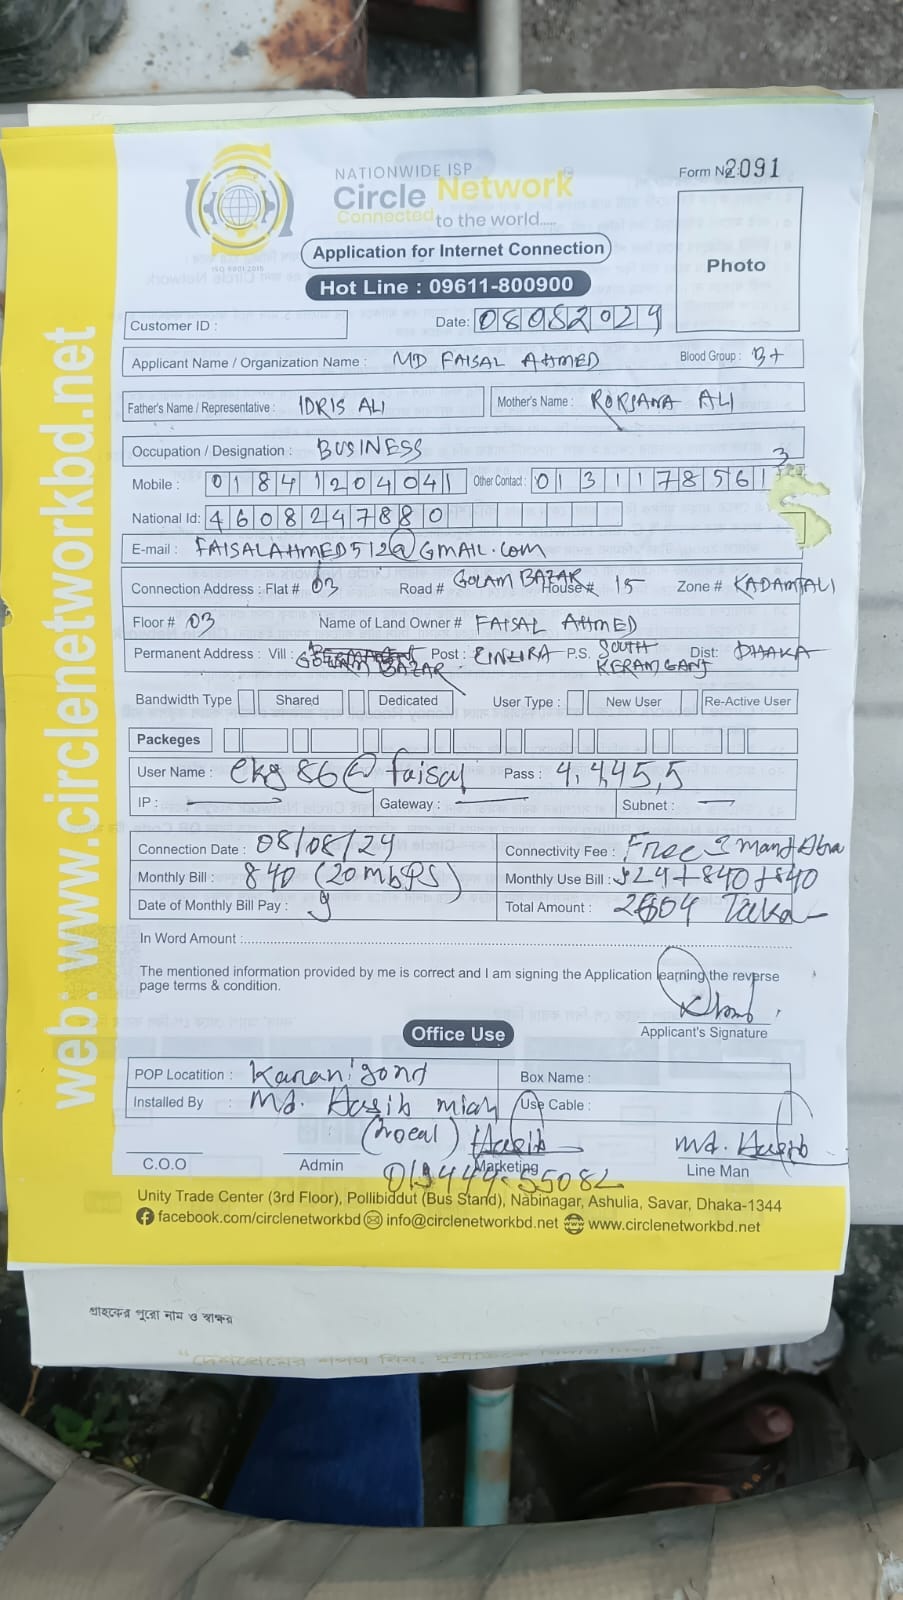 NATIONWIDE ISP
Circle Network
Connected to the world.....
ISO 9001:2015
Form No: 2091
Application for Internet Connection
Hot Line : 09611-800900
Photo
Customer ID :
Date: 08082024
Applicant Name / Organization Name : MD FAISAL AHMED Blood Group : B+
Father's Name / Representative : IDRIS ALI Mother's Name : ALI
Occupation / Designation : BUSINESS
Mobile : 01841204041 Other Contact : 01311785613
National Id: 4608247880
E-mail : FAISALAHMED512@GMAIL.com
Connection Address : Flat # 03 Road # GOLAM BAZAR House # 15 Zone # KADAMTALI
Floor # 03 Name of Land Owner # FAISAL AHMED
Permanent Address : Vill : GOLAM BAZAR Post : P.S. SOUTH KERANIGANJ Dist: DHAKA
Bandwidth Type Shared Dedicated User Type : New User Re-Active User
Packeges
User Name : ckg86@faisal Pass : 4,4,4,5,5
IP : Gateway : Subnet :
Connection Date : 08/08/24 Connectivity Fee : Free 3
Monthly Bill : 840 (20 mbps) Monthly Use Bill : +840+840
Date of Monthly Bill Pay : Total Amount : Taka
In Word Amount :
The mentioned information provided by me is correct and I am signing the Application learning the reverse
page terms & condition.
Applicant's Signature
Office Use
POP Locatition : Box Name :
Installed By : Md. Hasib miah Use Cable :
Hasib Md. Hasib
C.O.O Admin Marketing Line Man
Unity Trade Center (3rd Floor), Pollibiddut (Bus Stand), Nabinagar, Ashulia, Savar, Dhaka-1344
facebook.com/circlenetworkbd info@circlenetworkbd.net www.circlenetworkbd.net
web: www.circlenetworkbd.net
গ্রাহকের পুরো নাম ও স্বাক্ষর